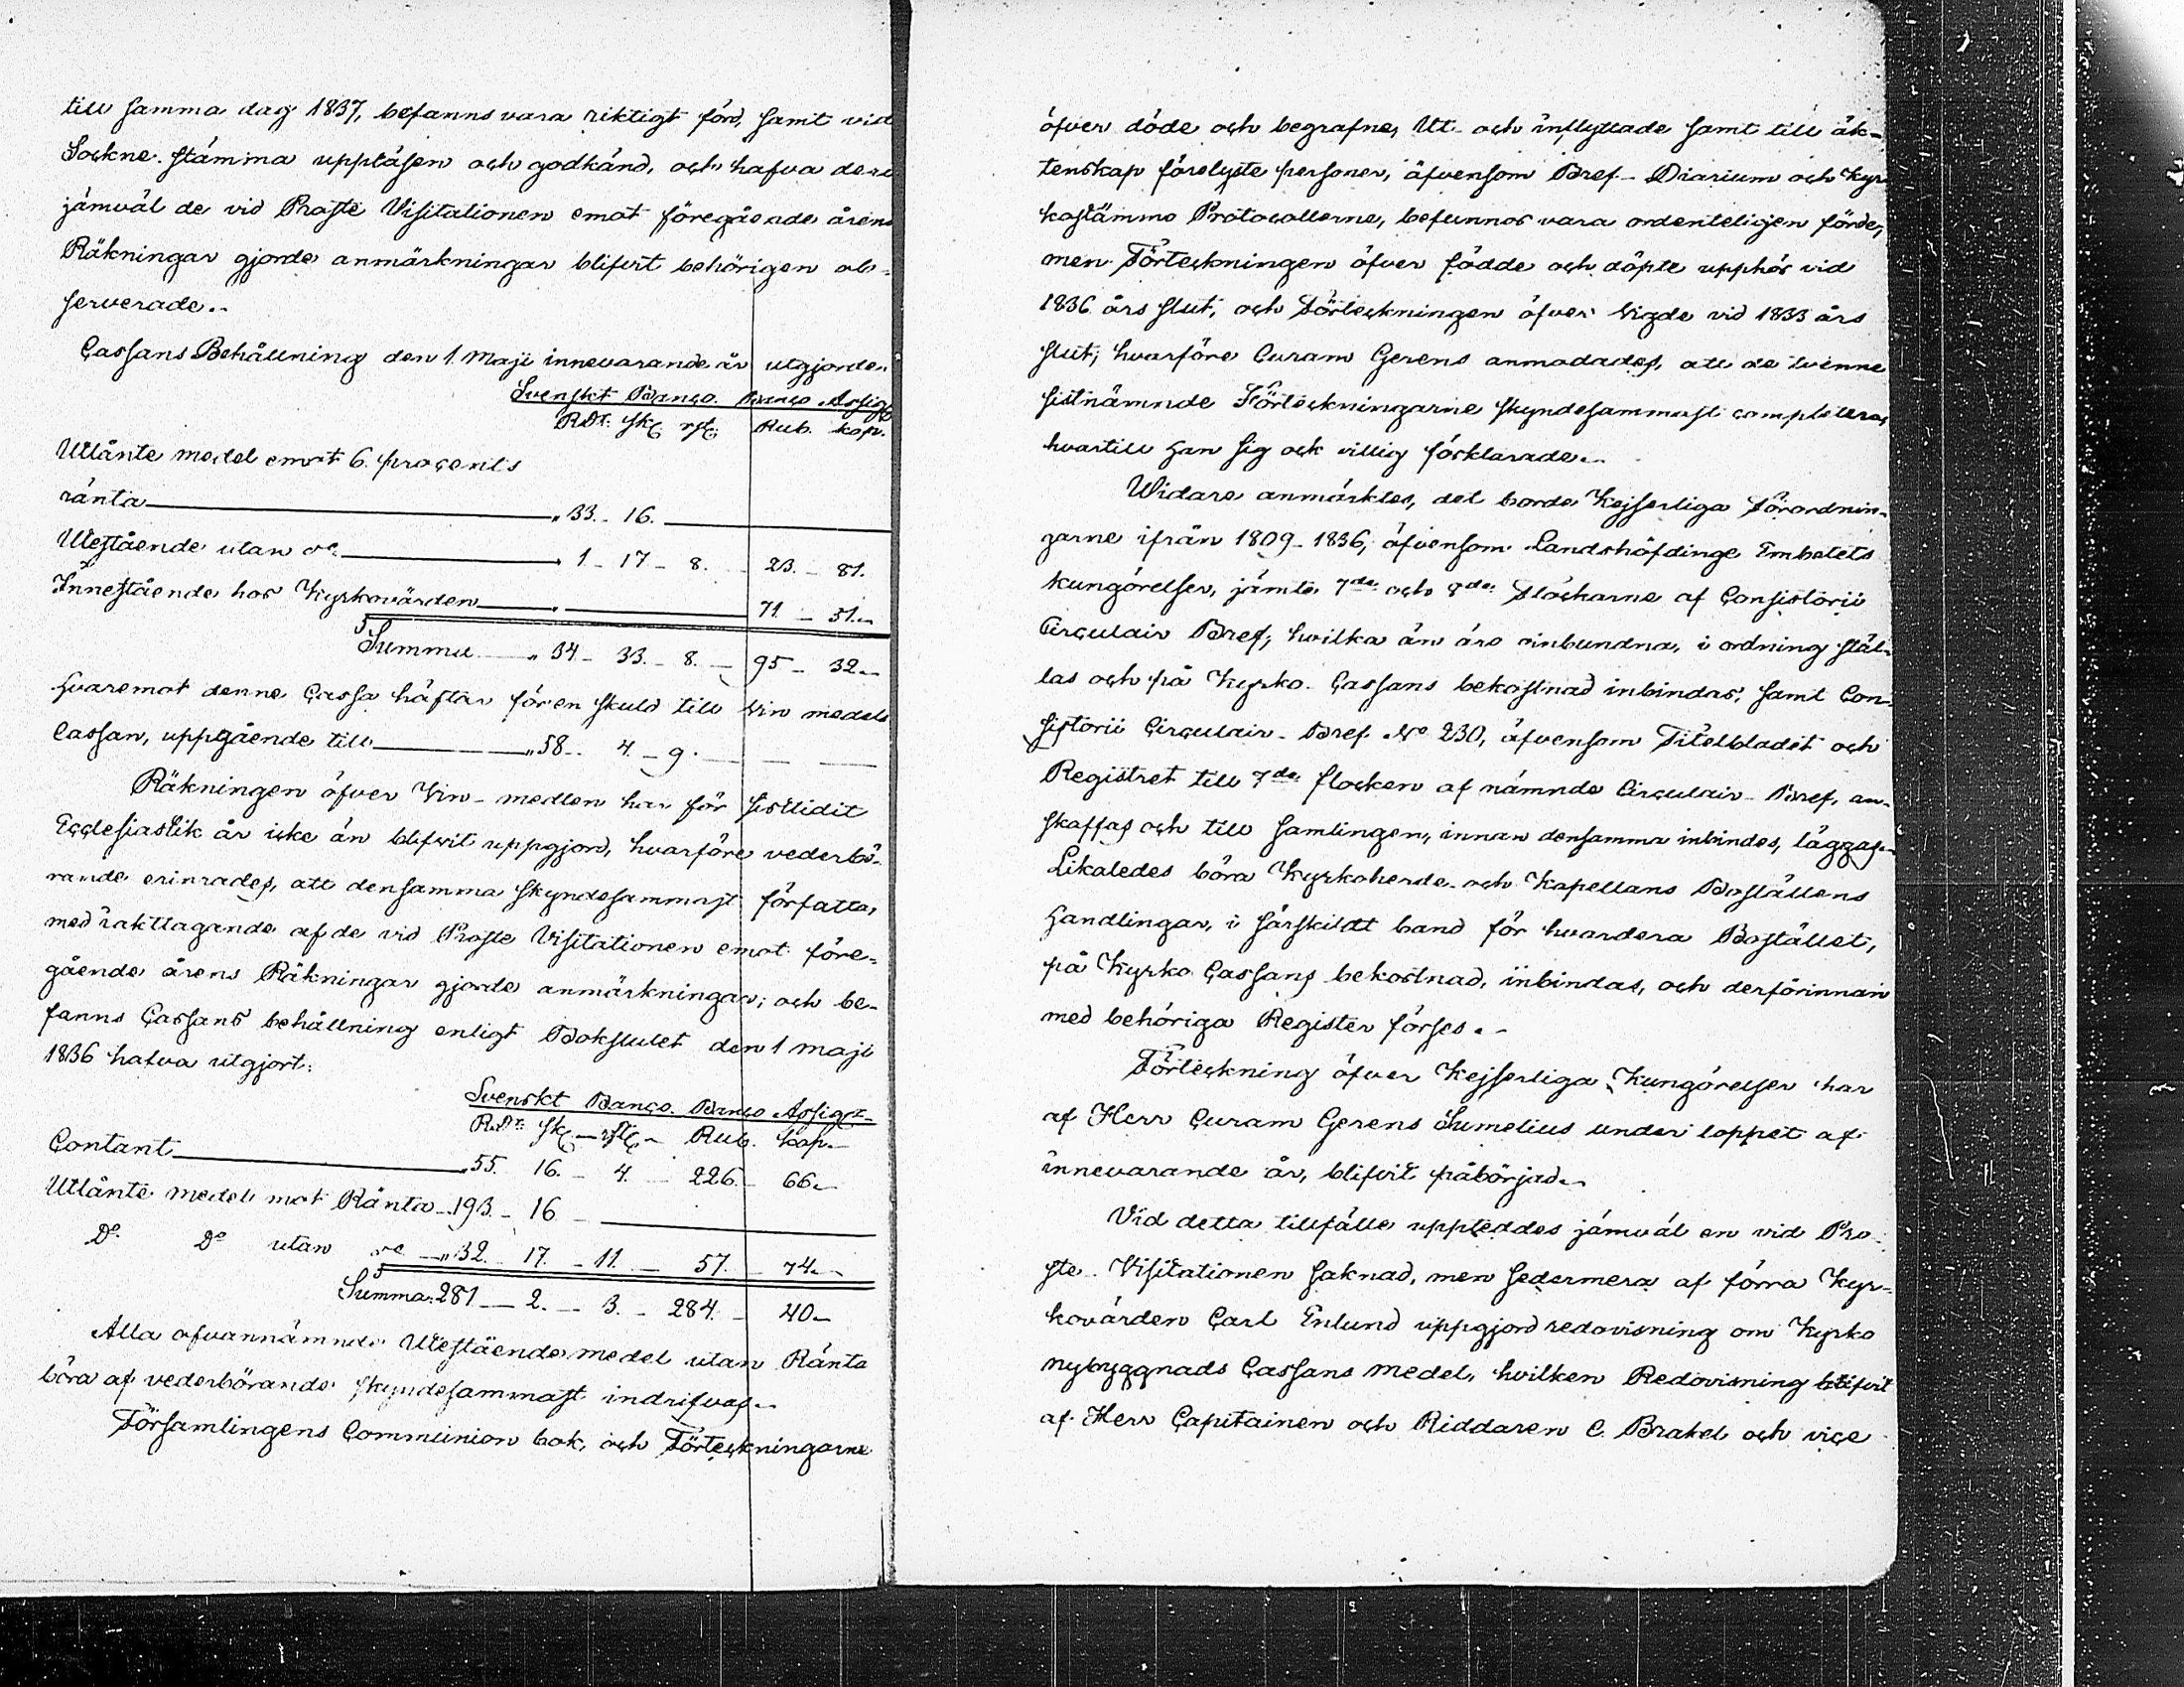 till samma dag 1837, befanns vara riktigt förd, samt vid
Sockne-stämma uppläsen och godkänd, och hafva dera
jämväl de vid Proste Visitationen emot föregående årens
Räkningar gjorde anmärkningar blifvit behörigen ob-
serverade..
Cassans Behållning den 1. Maji innevarande år utgjorde:
Svenskt Banco. Banco Assig
RDr. sk. rst. Rub. kop.
Utlånte medel emot 6. procents
ränta „33.- 16.
Utestående utan do 1 - 17 - 8. 23. - 81.
Innestående hos Kyrkovärden 71 - 51.-
Summa „34 - 33. - 8. - 95 - 32.-
Hvaremot denne Cassa häftar för en skuld till Vin medels
Cassan, uppgående till „58.- 4. - 9.
Räkningen öfver Vin-medlen har för sistlidit
Ecclesiastik år icke än blifvit uppgjord, hvarföre vederbö-
rande erinrades, att densamma skyndesammast författa,
med iakttagande af de vid Proste Visitationen emot före-
gående årens Räkningar gjorde anmärkningar; och be-
fanns Cassans behållning enligt Bokslutet den 1 maji
1836 hafva utgjort:
Svenskt Banco. Banco Assigr-
RDr. sk - rst - Rub. kop.-
Contant „55. 16. - 4. - 226. - 66.-
Utlånte medel mot Ränta - 193. - 16 -
Do. Do utan do - „32. 17. - 11. - 57. - 74.-
Summa: 281 - 2. - 3. - 284. - 40 -
Alla ofvannämnde Utestående medel utan Ränta
böra af vederbörande skyndesammast indrifvas.-
Församlingens Communion bok, och Förteckningarne
öfver döde och begrafne, Ut- och inflyttade samt till äk-
tenskap förelyste personer, äfvensom Bref-Diarium och Kyr
kostämmo Protocollerne, befunnos vara ordenteligen förde,
men Förteckningen öfver födde och döpte upphör vid
1836 års slut, och Förteckningen öfver Vigde vid 1833 års
slut; hvarföre Curam Gerens anmodades, att de tvenne
sistnämnde Förteckningarne skyndesammast complettera,
hvartill han sig ock villig förklarade..
Widare anmärktes, det borde Kejserliga Förordnin-
garne ifrån 1809-1836, äfvensom Landshöfdinge Embetets
kungörelser, jämte 7de och 8de Flockarne af Consistorii
Circulair Bref, hvilka än äro oinbundna, i ordning stäl-
las och på Kyrko-Cassans bekostnad inbindas, samt Con-
sistorii Circulair-Bref No 230, äfvensom Titelbladet och
Registret till 7de flocken af nämnde Circulair-Bref, an-
skaffas och till samlingen, innan densamma inbindes, läggas.-
Likaledes böra Kyrkoherde- och Kapellans Boställens
Handlingar, i särskildt band för hvardera Bostället,
på Kyrko Cassans bekostnad, inbindas, och derförinnan
med behöriga Register förses.-
Förteckning öfver Kejserliga Kungörelser har
af Herr Curam Gerens Sumelius under loppet af
innevarande år, blifvit påbörjad..
Vid detta tillfälle uppteddes jämväl en vid Pro-
ste-Visitationen saknad, men sedermera af förra Kyr-
kovärden Carl Enlund uppgjord redovisning om Kyrko
nybyggnads Cassans medel, hvilken Redovisning blifvit
af Herr Capitainen och Riddaren C. Brakel och vice